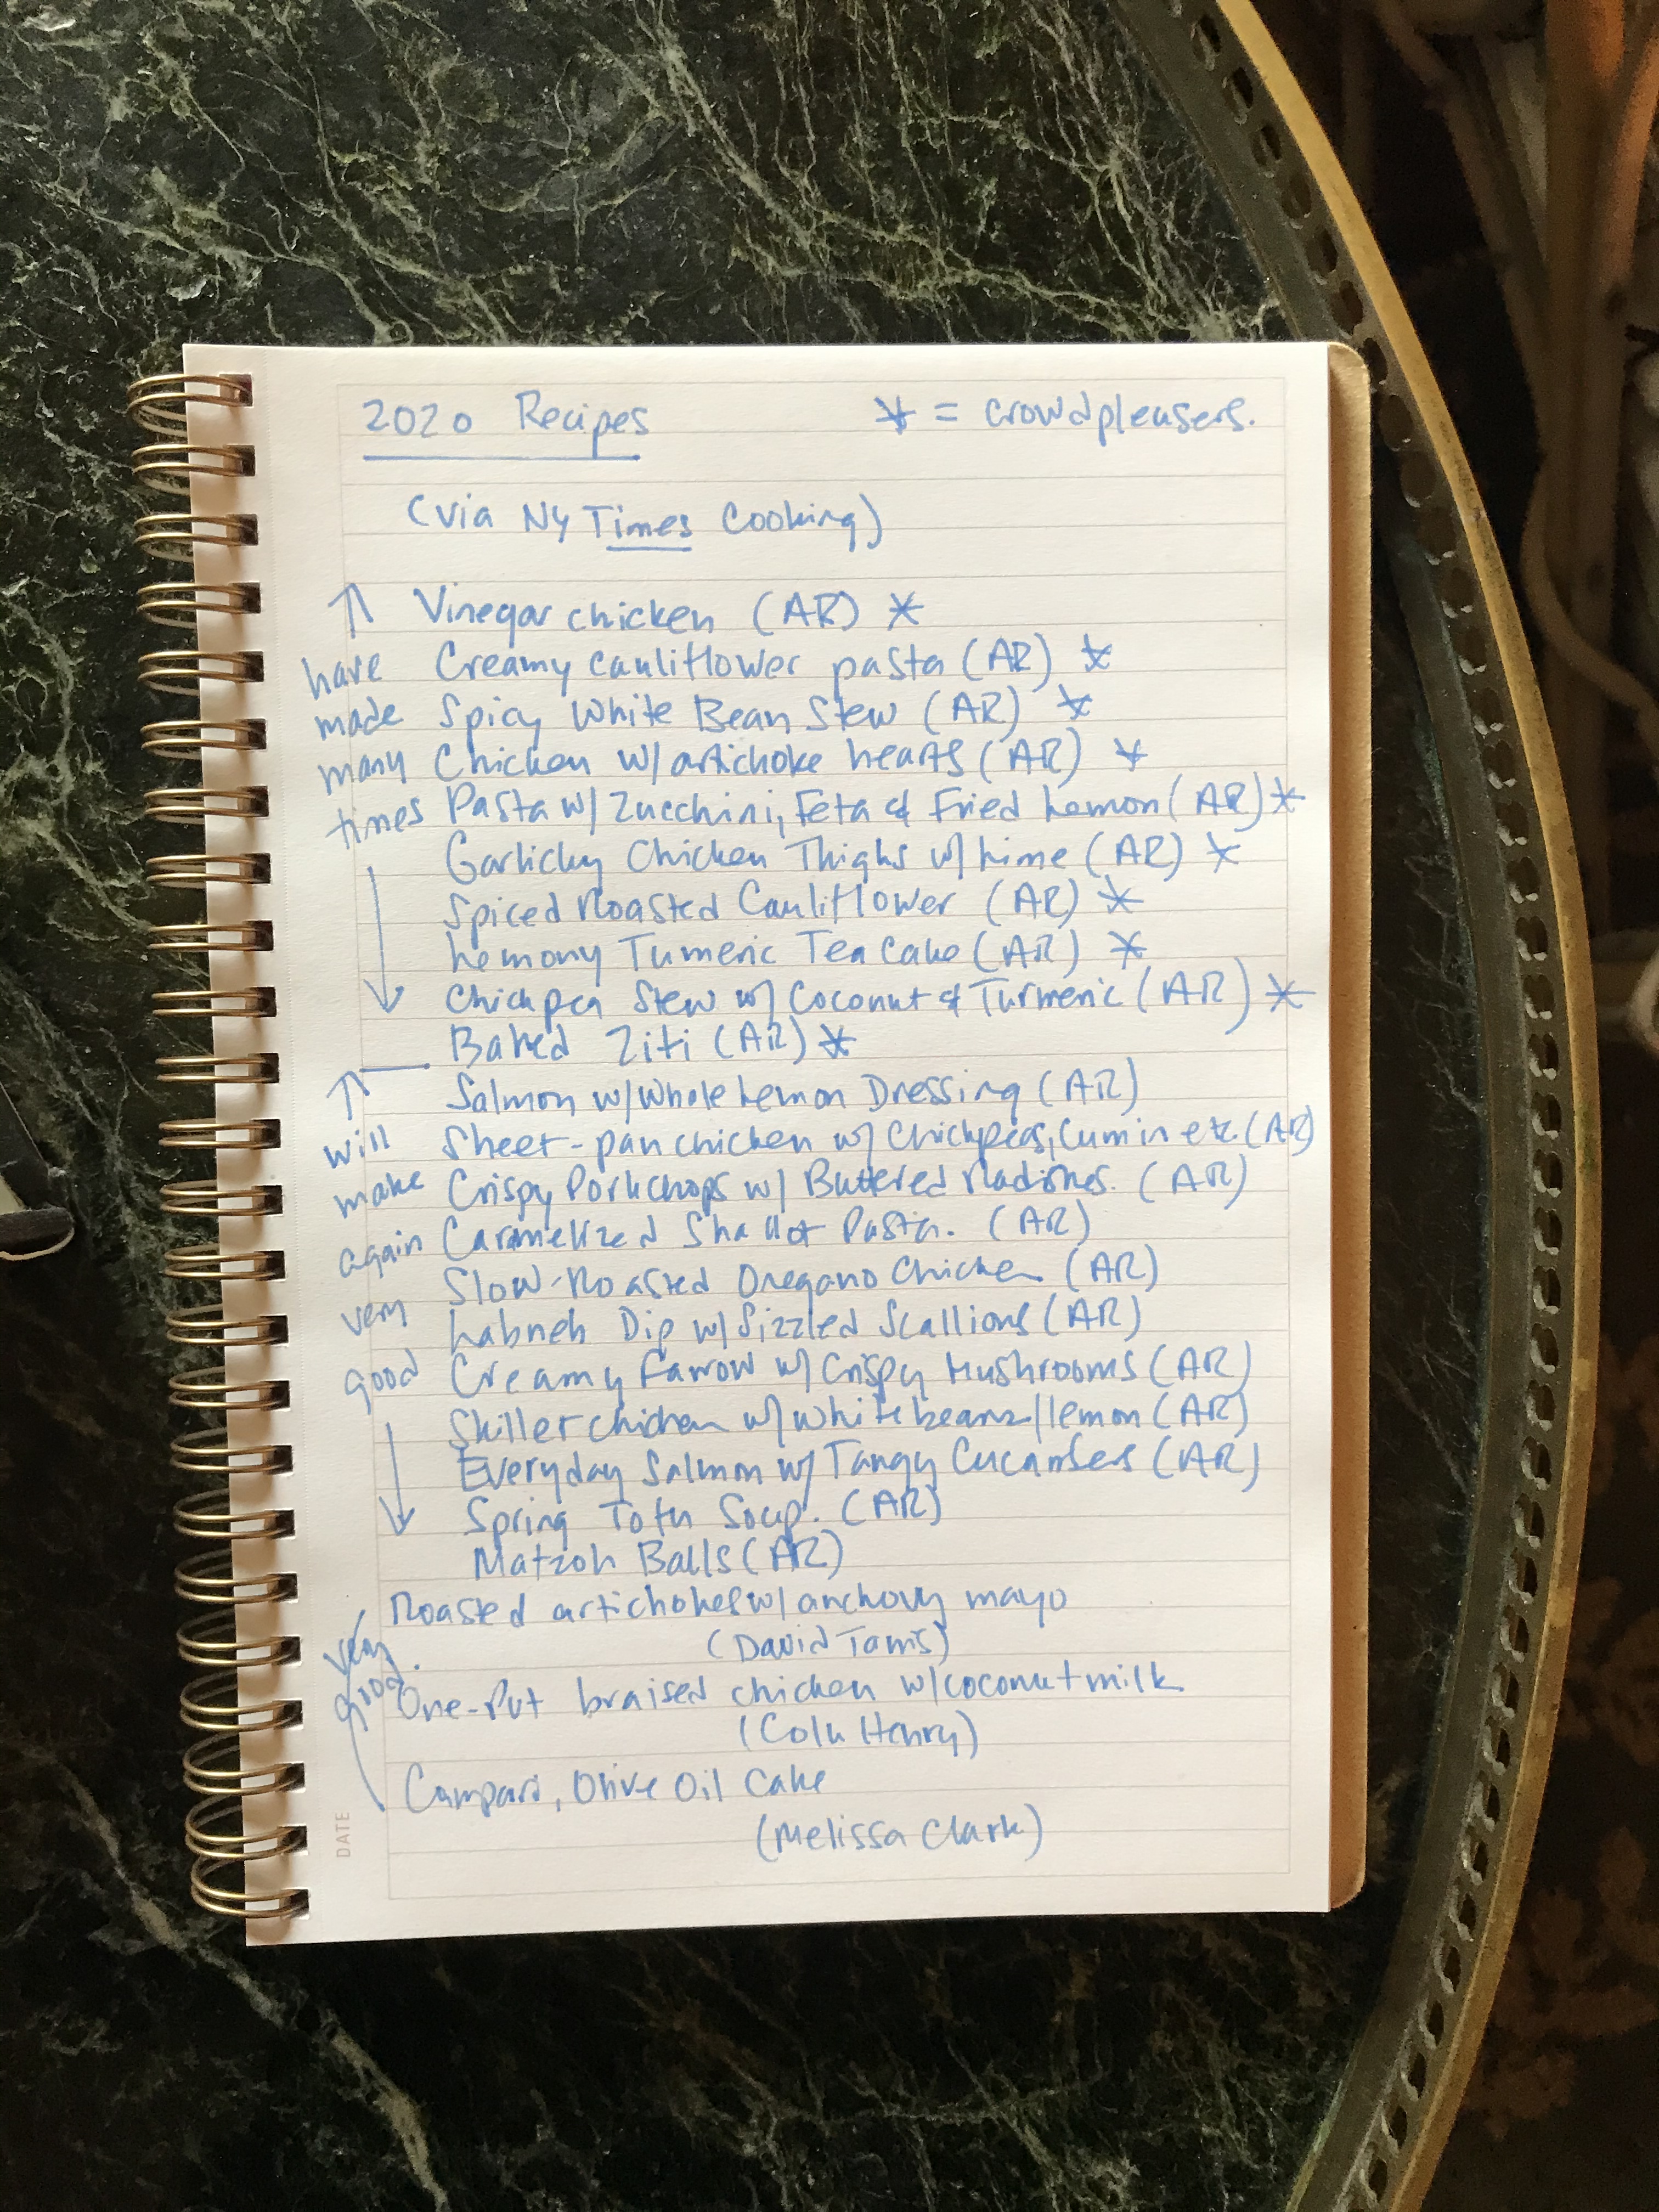 2020 Recipes * = crowdpleasers.
(via NY Times Cooking)
↑ Vinegar chicken (AR) *
have Creamy cauliflower pasta (AR) *
made Spicy White Bean Stew (AR) *
many Chicken w/ artichoke hearts (AR) *
times Pasta w/ Zucchini, Feta & Fried Lemon (AR) *
Garlicky Chicken Thighs w/ Lime (AR) *
Spiced Roasted Cauliflower (AR) *
Lemony Tumeric Tea Cake (AR) *
Chickpea Stew w/ Coconut & Turmeric (AR) *
Baked Ziti (AR) *
↑ Salmon w/ Whole Lemon Dressing (AR)
will Sheet-pan chicken w/ Chickpeas, Cumin etc. (AR)
make Crispy Porkchops w/ Buttered Radishes. (AR)
again Caramelized Shallot Pasta. (AR)
Slow-Roasted Oregano Chicken (AR)
very Labneh Dip w/ Sizzled Scallions (AR)
good Creamy Farrow w/ Crispy Mushrooms (AR)
Skillet chicken w/ white beans/lemon (AR)
Everyday Salmon w/ Tangy Cucumbers (AR)
Spring Tofu Soup. (AR)
Matzoh Balls (AR)
Roasted artichokes w/ anchovy mayo
very (David Tanis)
good. One-Pot braised chicken w/ coconut milk
(Colu Henry)
Campari, Olive Oil Cake
(Melissa Clark)
DATE